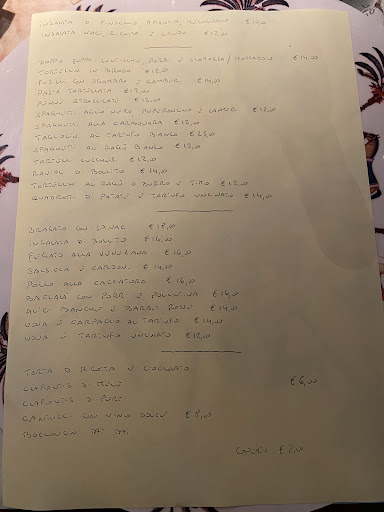 INSALATA DI FINOCCHIO, ARANCIA, MELOGRANO €12,00
INSALATA NOCI, RICOTTA E €12,00
ZUPPA LENTICCHIE, PORRI E /
€14,00
TORTELLINI IN BRODO €12,00
FUSILLI CON SGOMBRO E €14,00
PASTA TARTUFATA €12,00
PENNE STRASCICATE €12,00
SPAGHETTI AGLIO NERO PEPERONCINO E €12,00
SPAGHETTI ALLA CARBONARA €12,00
TAGLIOLINI AL TARTUFO BIANCO €25,00
SPAGHETTI AL RAGÙ BIANCO €12,00
TORTELLI LUCCHESI €12,00
RAVIOLI DI BOLLITO €14,00
TORTELLINI AL RAGÙ O BURRO E TIMO €12,00
QUADROTTI DI PATATE E TARTUFO UNCINATO €14,00
BRASATO CON SPINACI €18,00
INSALATA DI BOLLITO €16,00
FEGATO ALLA VENEZIANA €16,00
SALSICCIA E CARDONI €14,00
POLLO ALLA CACCIATORA €16,00
BACCALÀ CON PORRI E POLENTINA €16,00
ALICI BIANCHE E BARBE ROSSE €14,00
UOVA E CARPACCIO AL TARTUFO €14,00
UOVA E TARTUFO UNCINATO €12,00
TORTA DI RICOTTA E CIOCCOLATO
CLAFOUTIS DI MELE €6,00
CLAFOUTIS DI PERE
CANTUCCI CON VINO DOLCE €5,00
COPERTO €2,00